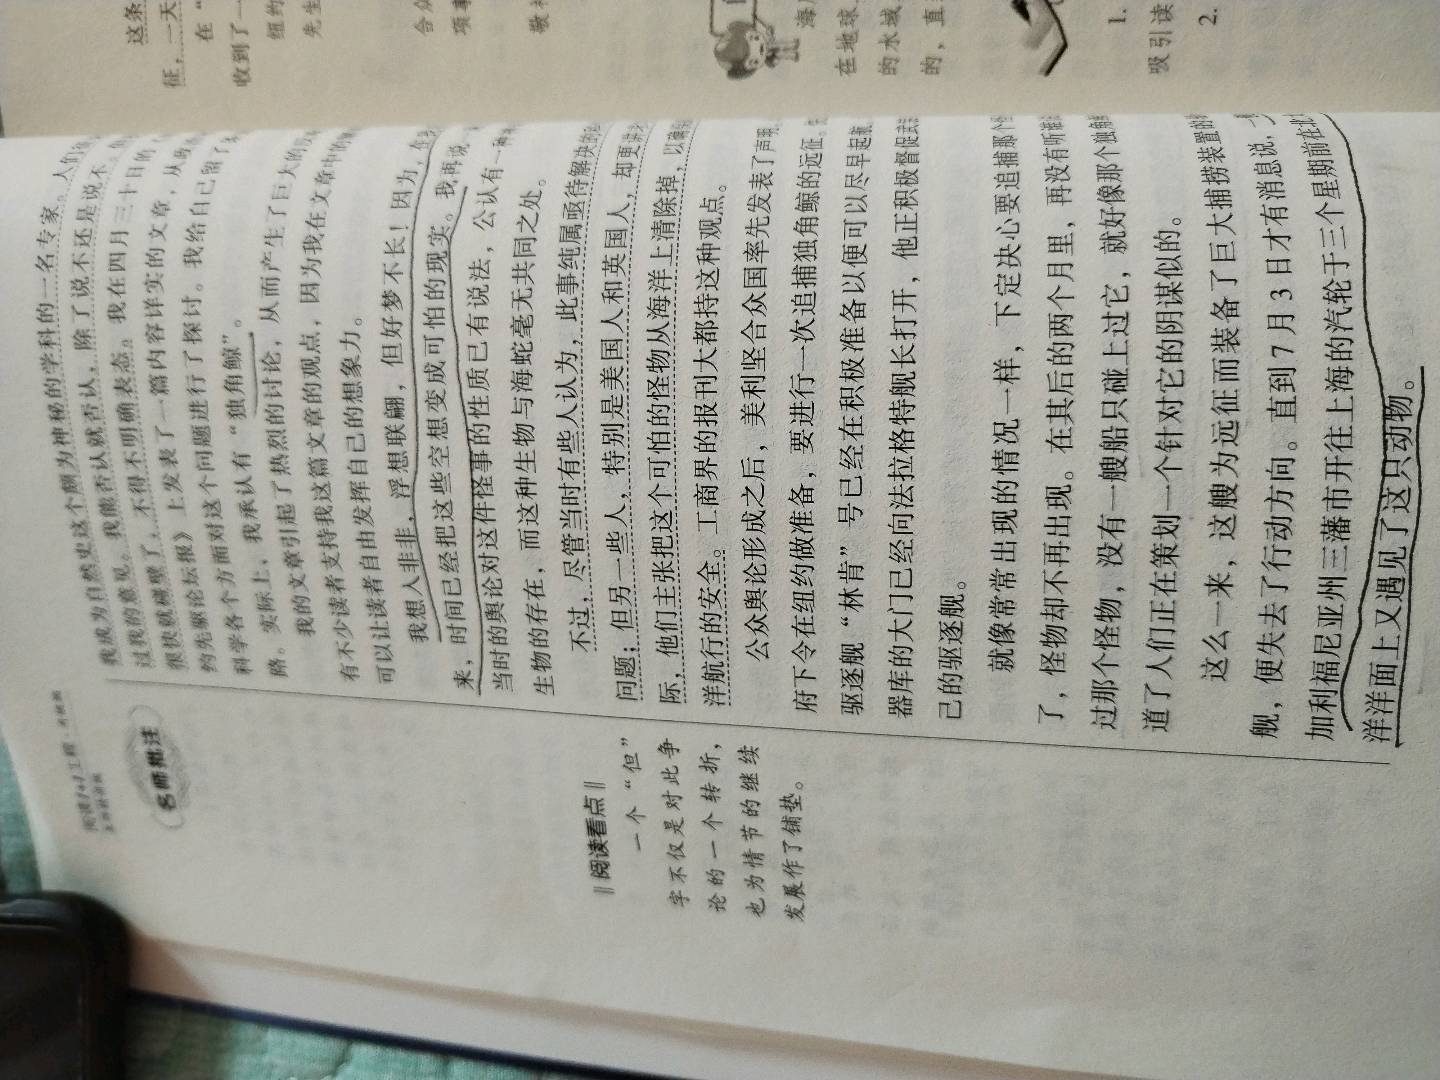 名师批注
我成为自然史这个颇为神秘的学科的一名专家。人们
过我的意见。我能否认就否认，除了说不还是说不。
很快就碰壁了，不得不明确表态。我在四月三十日的
约先驱论坛报》上发表了一篇内容详实的文章，从
科学各个方面对这个问题进行了探讨。我给自己留了
路。实际上，我承认有“独角鲸”。
我的文章引起了热烈的讨论，从而产生了巨大的
有不少读者支持我这篇文章的观点，因为我在文章中的
可以让读者自由发挥自己的想象力。
我想入非非，浮想联翩，但好梦不长！因为，
来，时间已经把这些空想变成可怕的现实。我再说
当时的舆论对这件怪事的性质已有说法，公认有一种
生物的存在，而这种生物与海蛇毫无共同之处。
不过，尽管当时有些人认为，此事纯属亟待解决的
问题；但另一些人，特别是美国人和英国人，却更讲
际，他们主张把这个可怕的怪物从海洋上清除掉，以确保
洋航行的安全。工商界的报刊大都持这种观点。
公众舆论形成之后，美利坚合众国率先发表了声明，
府下令在纽约做准备，要进行一次追捕独角鲸的远征。
驱逐舰“林肯”号已经在积极准备以便可以尽早起航
器库的大门已经向法拉格特舰长打开，他正积极督促武
己的驱逐舰。
就像常常出现的情况一样，下定决心要追捕那个
了，怪物却不再出现。在其后的两个月里，再没有听
过那个怪物，没有一艘船只碰上过它，就好像那个独角
道了人们正在策划一个针对它的阴谋似的。
这么一来，这艘为远征而装备了巨大捕捞装置的
舰，便失去了行动方向。直到7月3日才有消息说，一
加利福尼亚州三藩市开往上海的汽轮于三个星期前在北
洋洋面上又遇见了这只动物。
‖阅读看点‖
一个“但”
字不仅是对此争
论的一个转折，
也为情节的继续
发展作了铺垫。
这条
征，一天
在“
收到了一
纽约
先生
合众
项事
敬
海
在地球
的水域
的，直
1.
吸引读
2.